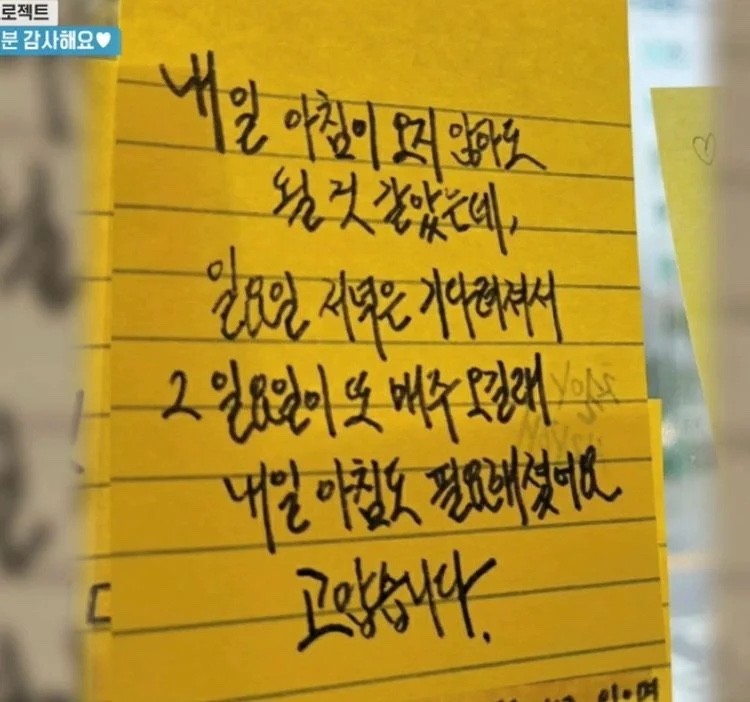 로젝트
분 감사해요♥
내일 아침이 오지 않아도
될 것 같았는데,
일요일 저녁은 기다려져서
그 일요일이 또 매주 오길래
내일 아침도 필요해졌어요
고맙습니다.